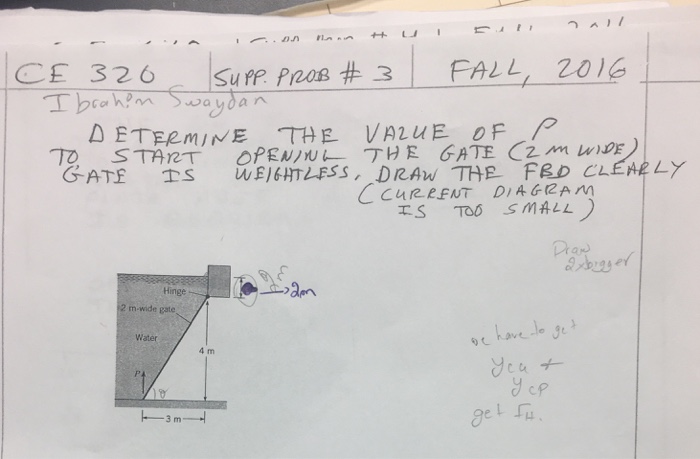 CE 320 SUPP. PROB # 3 FALL, 2016
Ibrahim Swaydan
DETERMINE THE VALUE OF P
TO START OPENING THE GATE (2 m WIDE)
GATE IS WEIGHTLESS, DRAW THE FBD CLEARLY
(CURRENT DIAGRAM
IS TOO SMALL)
Draw
2x bigger
Hinge
2m
2 m-wide gate
Water
4 m
P
θ
3 m
we have to get
ycg +
ycp
get IH.